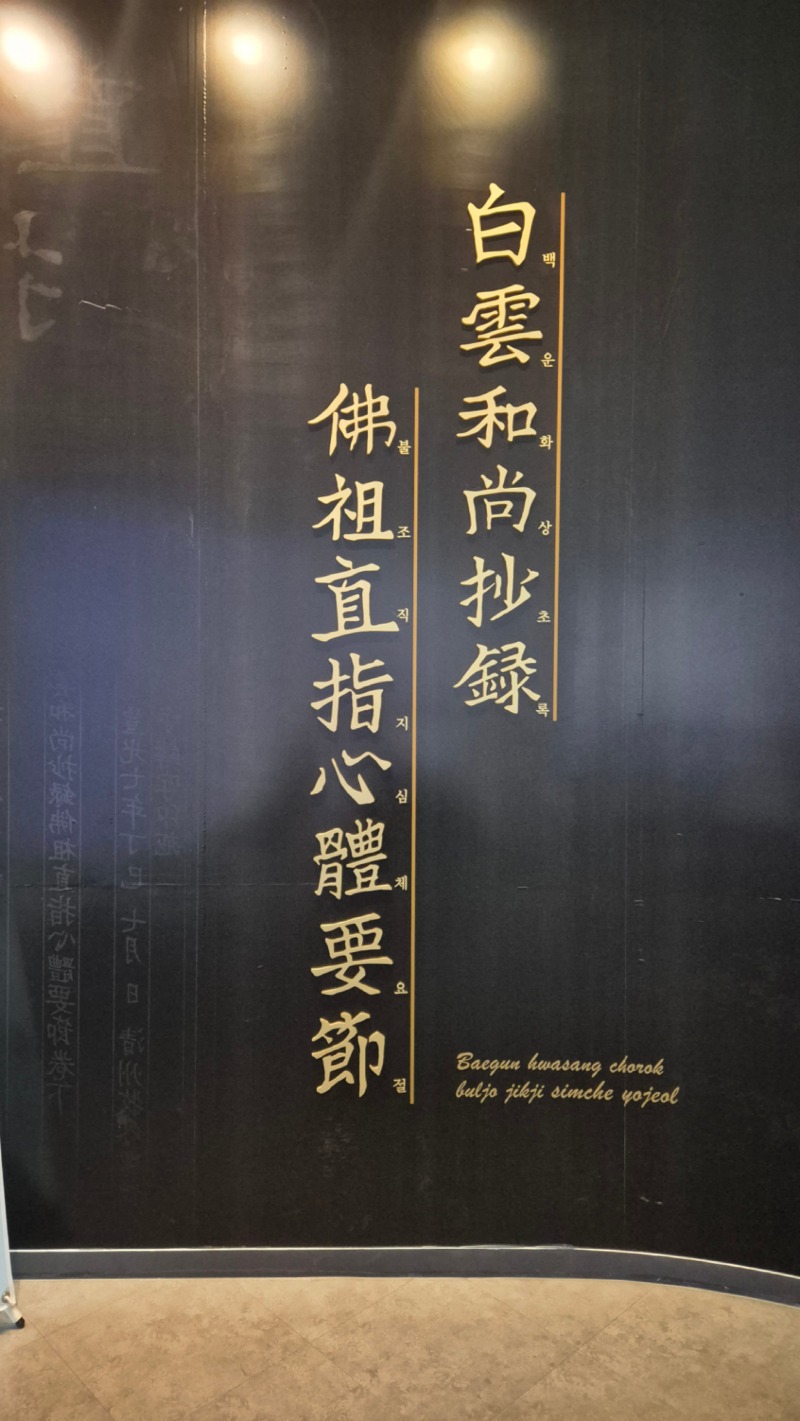 白雲和尚抄錄
백운화상초록
佛祖直指心體要節
불조직지심체요절
Baegun hwasang chorok
buljo jikji simche yojeol
光七年丁巳七月 日 清州牧
和尚抄錄佛祖直指心體要節卷下